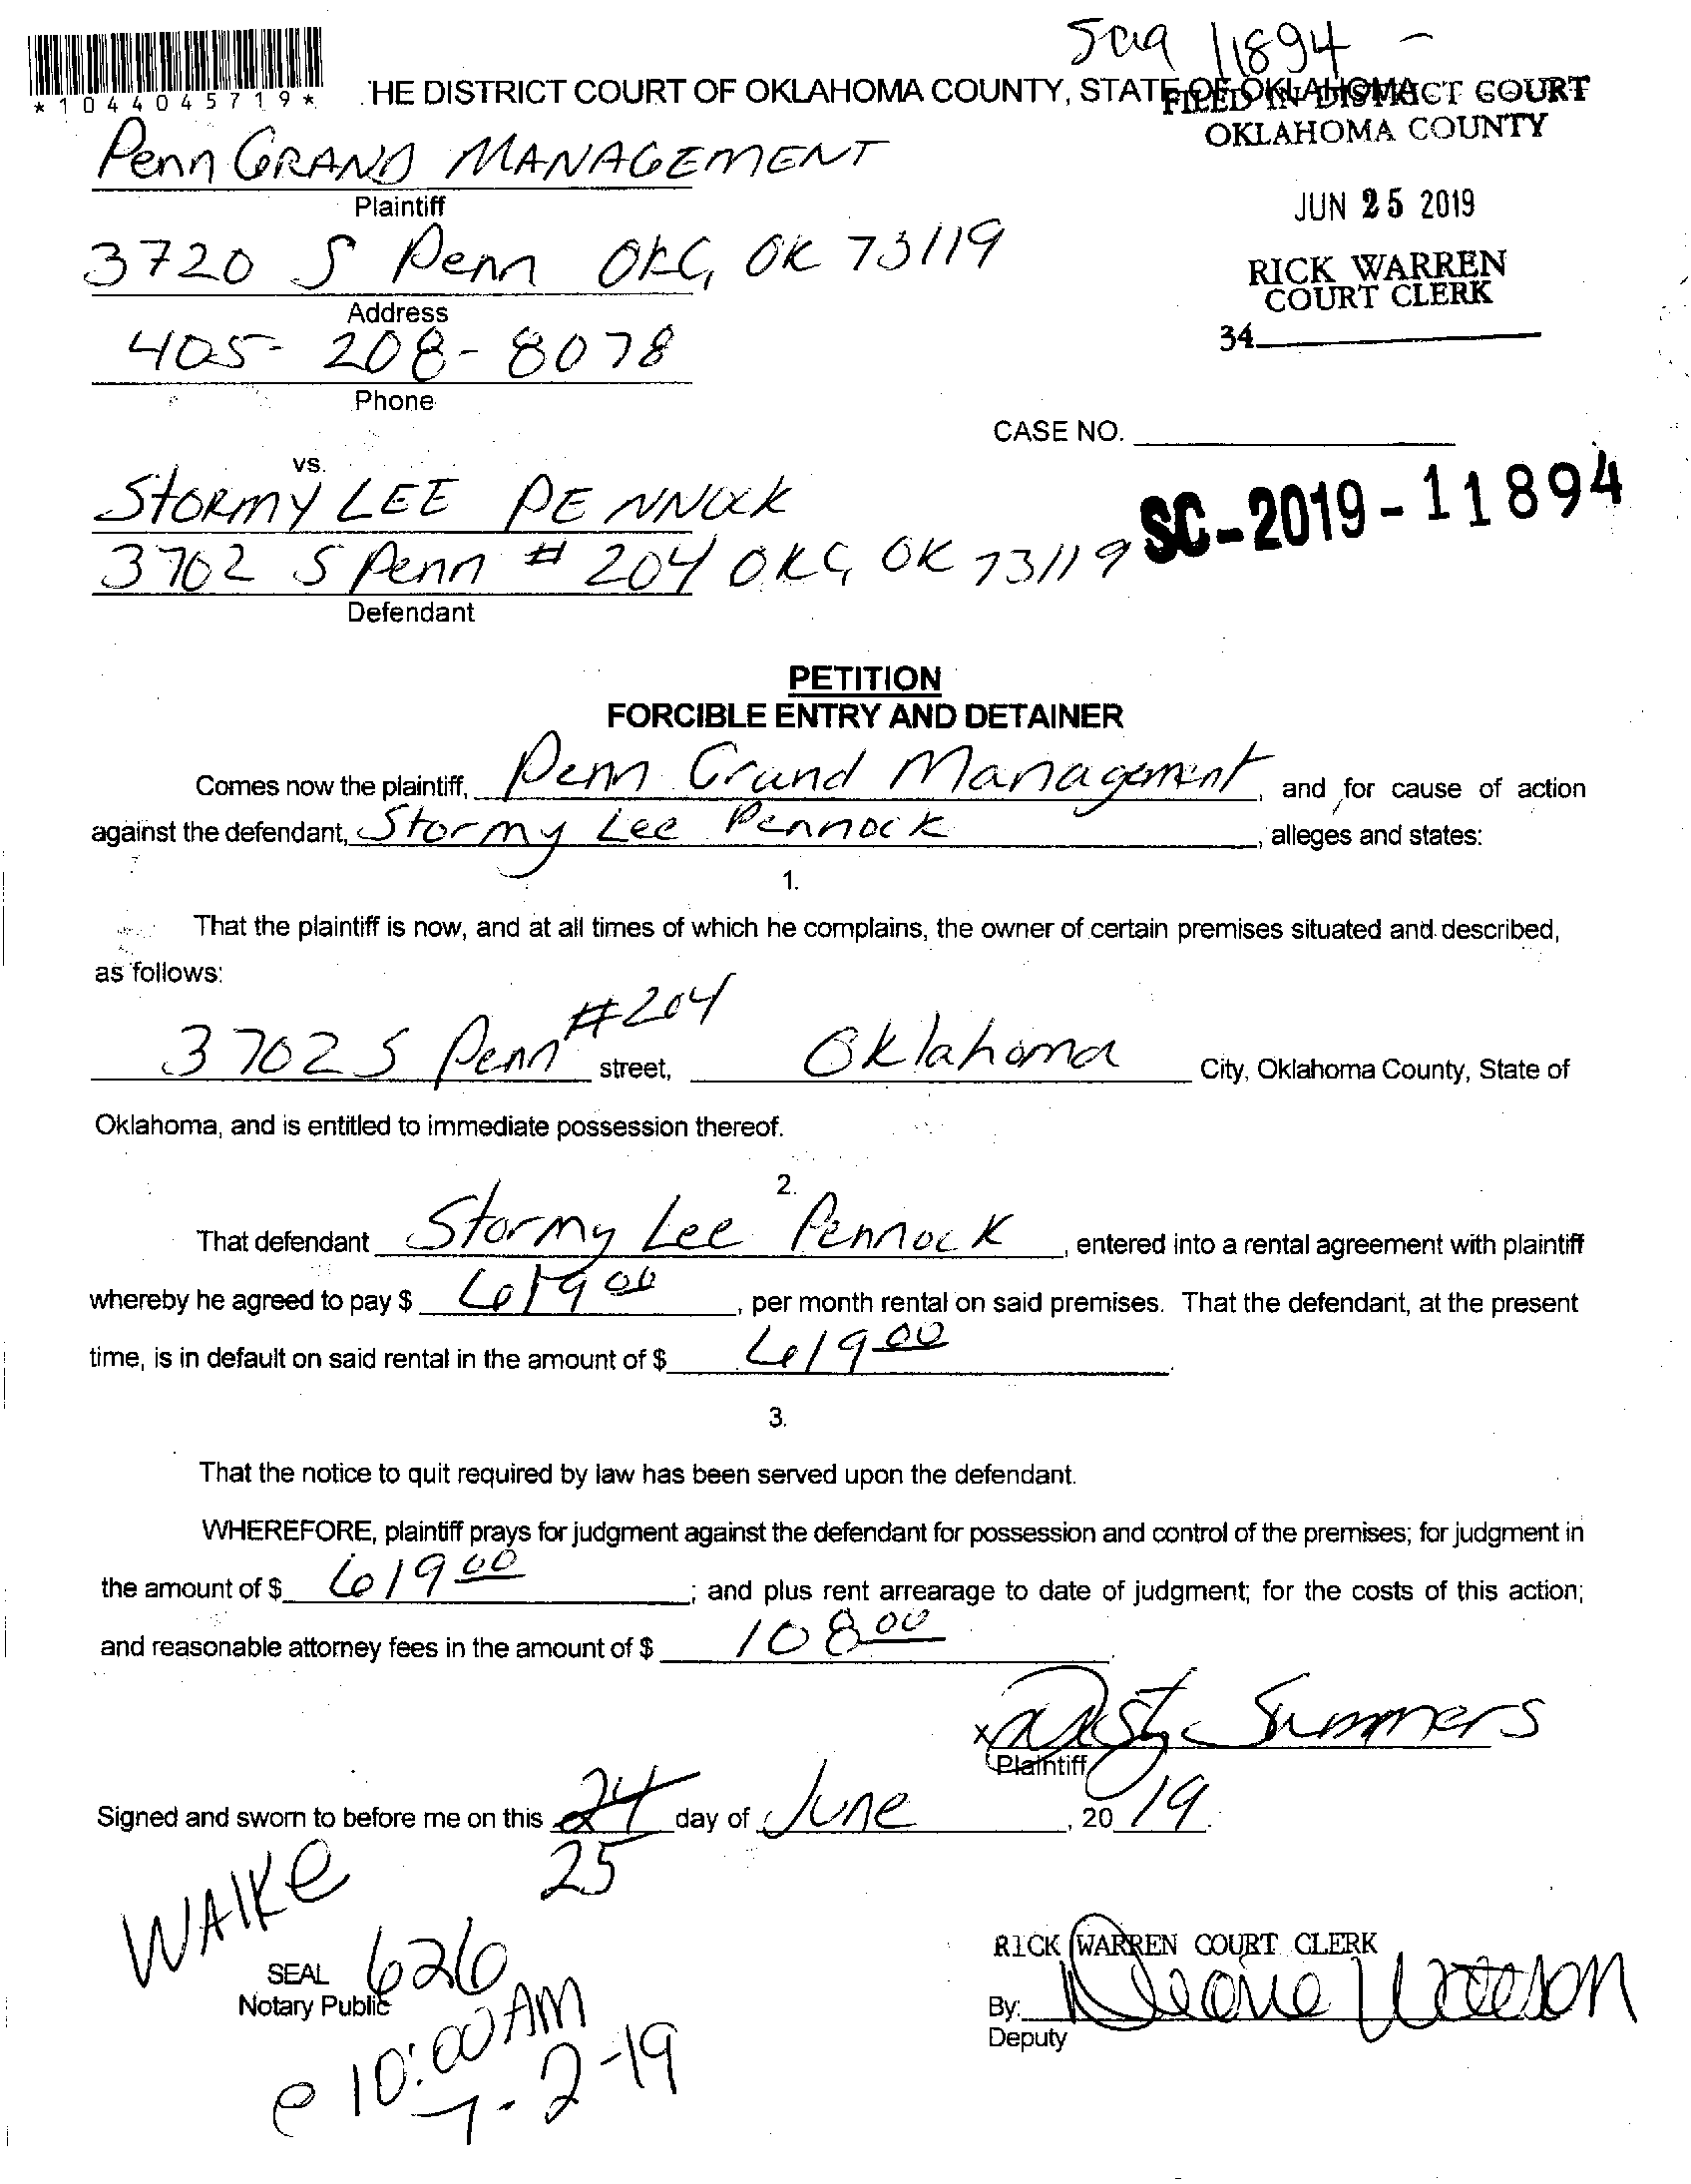 11894 -
*1044045719*
HE DISTRICT COURT OF OKLAHOMA COUNTY, STATE OF OKLAHOMA
FILED IN DISTRICT COURT
OKLAHOMA COUNTY
Penn GRAND MANAGEMENT
Plaintiff
JUN 25 2019
3720 S Penn OKC, OK 73119
RICK WARREN
COURT CLERK
Address
34
405-208-8078
Phone
CASE NO.
vs.
STORMY LEE PENNOCK
SC-2019-11894
3702 S Penn # 204 OKC, OK 73119
Defendant
PETITION
FORCIBLE ENTRY AND DETAINER
Comes now the plaintiff, Penn Grand Management, and for cause of action
against the defendant, Stormy Lee Pennock, alleges and states:
1.
That the plaintiff is now, and at all times of which he complains, the owner of certain premises situated and described,
as follows:
3702 S Penn #204 street, Oklahoma City, Oklahoma County, State of
Oklahoma, and is entitled to immediate possession thereof.
2.
That defendant Stormy Lee Pennock, entered into a rental agreement with plaintiff
whereby he agreed to pay $ 619 00, per month rental on said premises. That the defendant, at the present
time, is in default on said rental in the amount of $ 619 00.
3.
That the notice to quit required by law has been served upon the defendant.
WHEREFORE, plaintiff prays for judgment against the defendant for possession and control of the premises; for judgment in
the amount of $ 619 00; and plus rent arrearage to date of judgment; for the costs of this action;
and reasonable attorney fees in the amount of $ 108 00.
x Summers
Plaintiff
Signed and sworn to before me on this 24 day of June, 20 19.
25
WAlKe
SEAL 626
Notary Public
@ 10:00 AM
7-2-19
RICK WARREN COURT CLERK
By:
Deputy